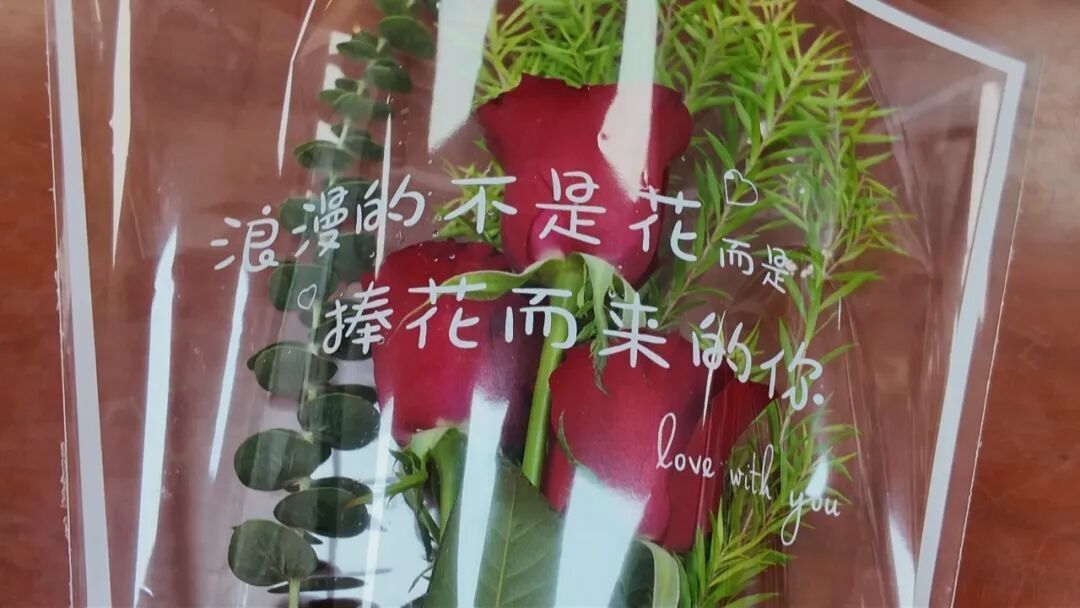 浪漫的不是花而是
捧花而来的你
love with you